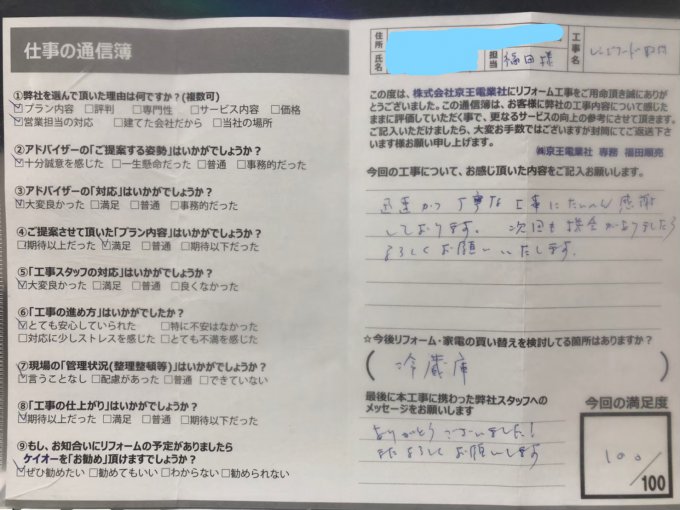 仕事の通信簿
①弊社を選んで頂いた理由は何ですか？(複数可)
☑プラン内容 □評判 □専門性 □サービス内容 □価格
☑営業担当の対応 □建てた会社だから □当社の場所
②アドバイザーの「ご提案する姿勢」はいかがでしょうか？
☑十分誠意を感じた □一生懸命だった □普通 □事務的だった
③アドバイザーの「対応」はいかがでしょうか？
☑大変良かった □満足 □普通 □事務的だった
④ご提案させて頂いた「プラン内容」はいかがでしょうか？
□期待以上だった ☑満足 □普通 □期待以下だった
⑤「工事スタッフの対応」はいかがでしょうか？
☑大変良かった □満足 □普通 □良くなかった
⑥「工事の進め方」はいかがでしたか？
☑とても安心していられた □特に不安はなかった
□対応に少しストレスを感じた □とても不満を感じた
⑦現場の「管理状況(整理整頓等)」はいかがでしょうか？
☑言うことなし □配慮があった □普通 □できていない
⑧「工事の仕上がり」はいかがでしょうか？
☑期待以上だった □満足 □普通 □期待以下だった
⑨もし、お知合いにリフォームの予定がありましたら
ケイオーを「お勧め」頂けますでしょうか？
☑ぜひ勧めたい □勧めてもいい □わからない □勧められない
住所
氏名
担当 福田様
工事名 レンジフード取付
この度は、株式会社京王電業社にリフォーム工事をご用命頂き誠にありが
とうございました。この通信簿は、お客様に弊社の工事内容について感じた
ままに評価していただく事で、更なるサービスの向上の参考にさせて頂きます。
ご記入いただけましたら、大変お手数ではございますが封筒にてご返送下さ
います様お願い申し上げます。
㈱京王電業社 専務 福田順亮
今回の工事について、お感じ頂いた内容をご記入お願いします。
迅速かつ丁寧な工事にたいへん感謝
しております。次回も機会がありましたら
よろしくお願いいたします。
☆今後リフォーム・家電の買い替えを検討してる箇所はありますか？
(冷蔵庫)
最後に本工事に携わった弊社スタッフへの
メッセージをお願いします
ありがとうございました！
またよろしくお願いします
今回の満足度
100
/100